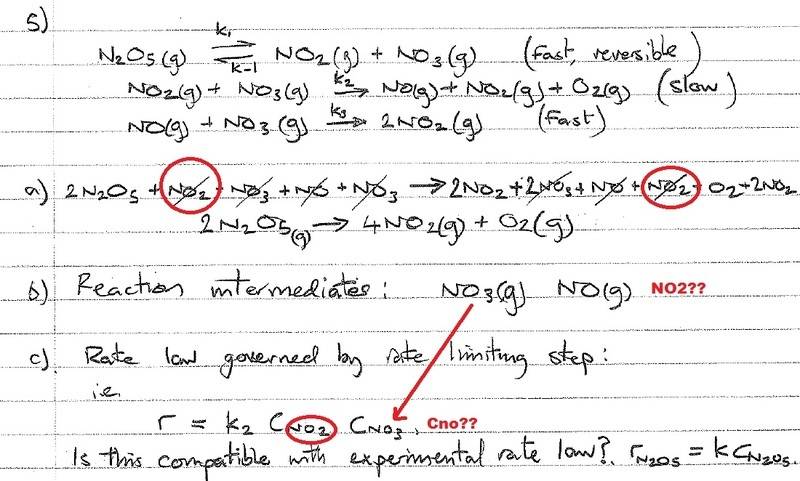 5)
N2O5(g) k1 ⇌ k-1 NO2(g) + NO3(g) (fast, reversible)
NO2(g) + NO3(g) k2 → NO(g) + NO2(g) + O2(g) (slow)
NO(g) + NO3(g) k3 → 2NO2(g) (fast)
a) 2N2O5 + NO2 + NO3 + NO + NO3 → 2NO2 + 2NO3 + NO + NO2 + O2 + 2NO2
2N2O5(g) → 4NO2(g) + O2(g)
b) Reaction intermediates: NO3(g) NO(g) NO2??
c) Rate law governed by rate limiting step:
i.e.
r = k2 CNO2 CNO3. Cno??
Is this compatible with experimental rate law?. rN2O5 = kCN2O5.